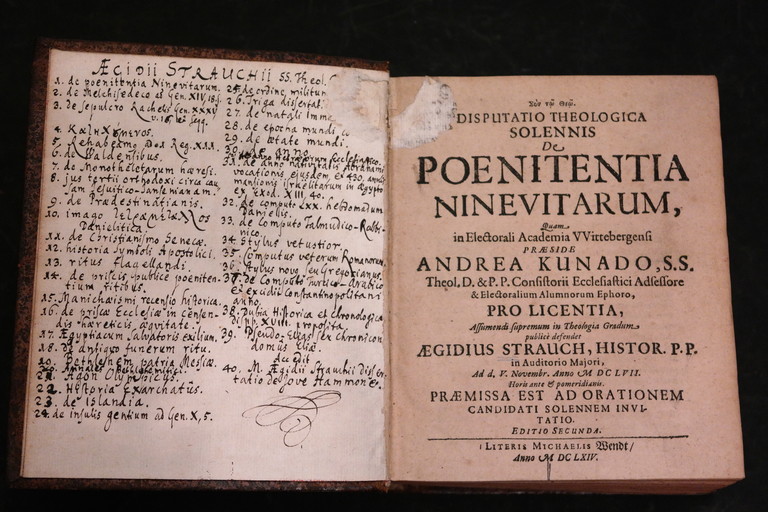 ÆGIDII STRAUCHII SS. Theol.
1. de poenitentia Ninevitarum.
2. de Melchisedeco ad Gen. XIV, 18.
3. de sepulcro Rachelis Gen. XXXV
v. 16. et seqq.
4.
5. Rehabeamo ad 1 Reg. XII.
6. de Waldensibus.
7. de Monotheletarum hæresi.
8. jus tertii orthodoxi circa cau
am Jesuitico-Jansenianam.
9. de Prædestinatianis.
10. imago
Danielitica
11. de Christianismo Senecæ.
12. historia symboli Apostolici.
13. ritus flagellandi.
14. de priscis publice poeniten-
tium ritibus.
15. Manichæismi recensio historica.
16. de priscæ Ecclesiæ in censen-
dis hæreticis æquitate.
17. Ægyptiacum Salvatoris exilium.
18. de antiquo funerum ritu.
Bethlehem patria Messiæ.
21. Agon Olympicus.
22. Historia Exarchatus.
23. de Islandia.
24. de insulis gentium ad Gen. X, 5.
25. de ordine, militum
26. Triga dissertat.
27. de natali Imme
28. de epocha mundi
29. de ætate mundi.
30. de anno
31. de anno nativitatis Abrahami
vocationis ejusdem, et 430. annis
mansionis israelitarum in Ægypto
ex Exod. XII, 40.
32. de computo LXX. hebdomadum
Danielis.
33. de Computo Talmudico-Rabbi-
nico.
34. Stylus vetustior
35. Computus veterum Romanorum.
36. Stylus novus seu Gregorianus.
37. de Computo Turcico-Arabico
et excidii Constantinopolitani
anno.
38. Dubia Historica et chronologica
disp. XVIII. proposita.
39. Pseudo-Elias seu chronicon
domus Eliæ.
Accedit
40. M. Ægidii Strauchii disser
tatio de Jove Hammone.
Σὺν τῷ Θεῷ.
DISPUTATIO THEOLOGICA
SOLENNIS
De
POENITENTIA
NINEVITARUM,
Quam
in Electorali Academia VVittebergensi
PRÆSIDE
ANDREA KUNADO, S.S.
Theol. D. & P. P. Consistorii Ecclesiastici Adsessore
& Electoralium Alumnorum Ephoro,
PRO LICENTIA,
Assumendi supremum in Theologia Gradum
publicè defendet
ÆGIDIUS STRAUCH, HISTOR. P.P.
in Auditorio Majori,
Ad d. V. Novembr. Anno M DC LVII.
Horis ante & pomeridianis.
PRÆMISSA EST AD ORATIONEM
CANDIDATI SOLENNEM INVI-
TATIO.
EDITIO SECUNDA.
LITERIS MICHAELIS Wendt/
Anno M DC LXIV.